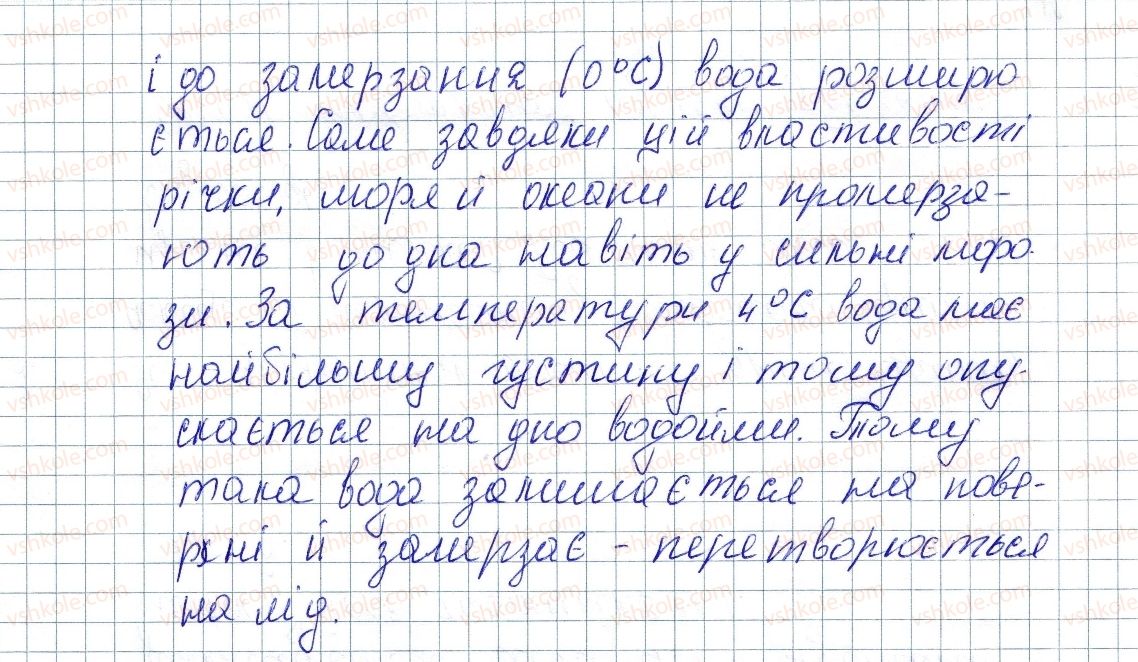 і до замерзання (0°С) вода розширю
ється. Саме завдяки цій властивості
річки, моря й океани не промерза-
ють до дна навіть у сильні моро-
зи. За температури 4°С вода має
найбільшу густину і тому опу-
скається на дно водойми. Тому
така вода залишається на пове-
рхні й замерзає - перетворюється
на лід.